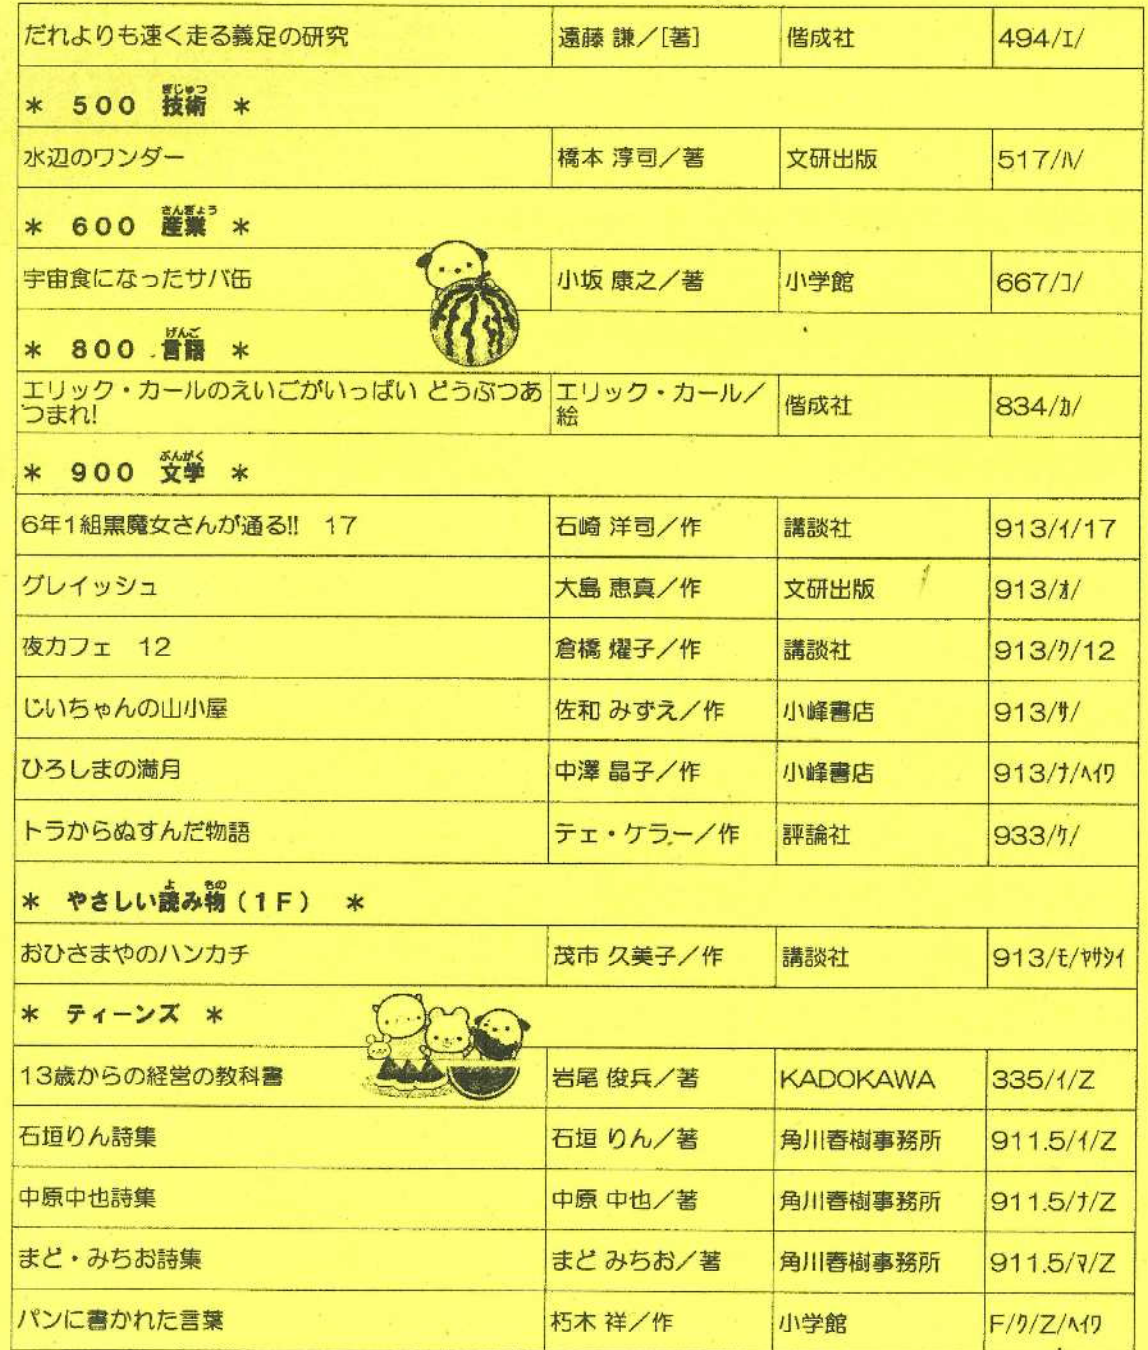 だれよりも速く走る義足の研究 遠藤 謙／[著] 偕成社 494/ｴ/
ぎじゅつ
＊ 500 技術 ＊
水辺のワンダー 橋本 淳司／著 文研出版 517/ﾊ/
さんぎょう
＊ 600 産業 ＊
宇宙食になったサバ缶 小坂 康之／著 小学館 667/ｺ/
げんご
＊ 800 言語 ＊
エリック・カールのえいごがいっぱい どうぶつあ エリック・カール／ 偕成社 834/ｶ/
つまれ! 絵
ぶんがく
＊ 900 文学 ＊
6年1組黒魔女さんが通る!! 17 石崎 洋司／作 講談社 913/ｲ/17
グレイッシュ 大島 恵真／作 文研出版 913/ｵ/
夜カフェ 12 倉橋 燿子／作 講談社 913/ｸ/12
じいちゃんの山小屋 佐和 みずえ／作 小峰書店 913/ｻ/
ひろしまの満月 中澤 晶子／作 小峰書店 913/ﾅ/ﾍｲﾜ
トラからぬすんだ物語 テェ・ケラー／作 評論社 933/ｹ/
よ もの
＊ やさしい読み物（1F） ＊
おひさまやのハンカチ 茂市 久美子／作 講談社 913/ﾓ/ﾔｻｼｲ
＊ ティーンズ ＊
13歳からの経営の教科書 岩尾 俊兵／著 KADOKAWA 335/ｲ/Z
石垣りん詩集 石垣 りん／著 角川春樹事務所 911.5/ｲ/Z
中原中也詩集 中原 中也／著 角川春樹事務所 911.5/ﾅ/Z
まど・みちお詩集 まど みちお／著 角川春樹事務所 911.5/ﾏ/Z
パンに書かれた言葉 朽木 祥／作 小学館 F/ｸ/Z/ﾍｲﾜ